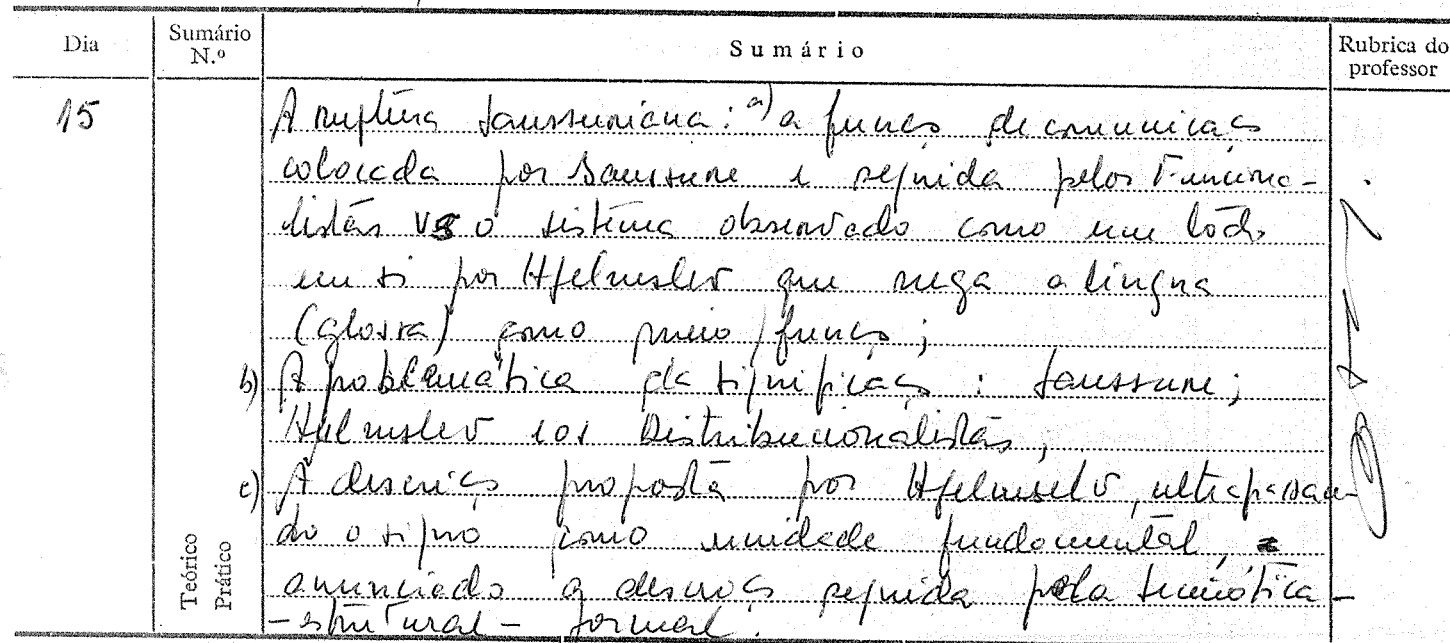 Dia
Sumário N.º
Sumário
Rubrica do professor
15
A ruptura saussuriana: a) a função de comunicação
colocada por Saussure e seguida pelos Funciona-
listas vs o sistema observado como um todo
em si por Hjelmslev que nega a língua
(glossa) como meio/função;
b) A problemática da significação: Saussure;
Hjelmslev e os Distribucionalistas;
c) A descrição proposta por Hjelmslev, ultrapassan-
do o signo como unidade fundamental,
anunciado a descrição seguida pela semiótica-
-estrutural-formal.
Teórico
Prático